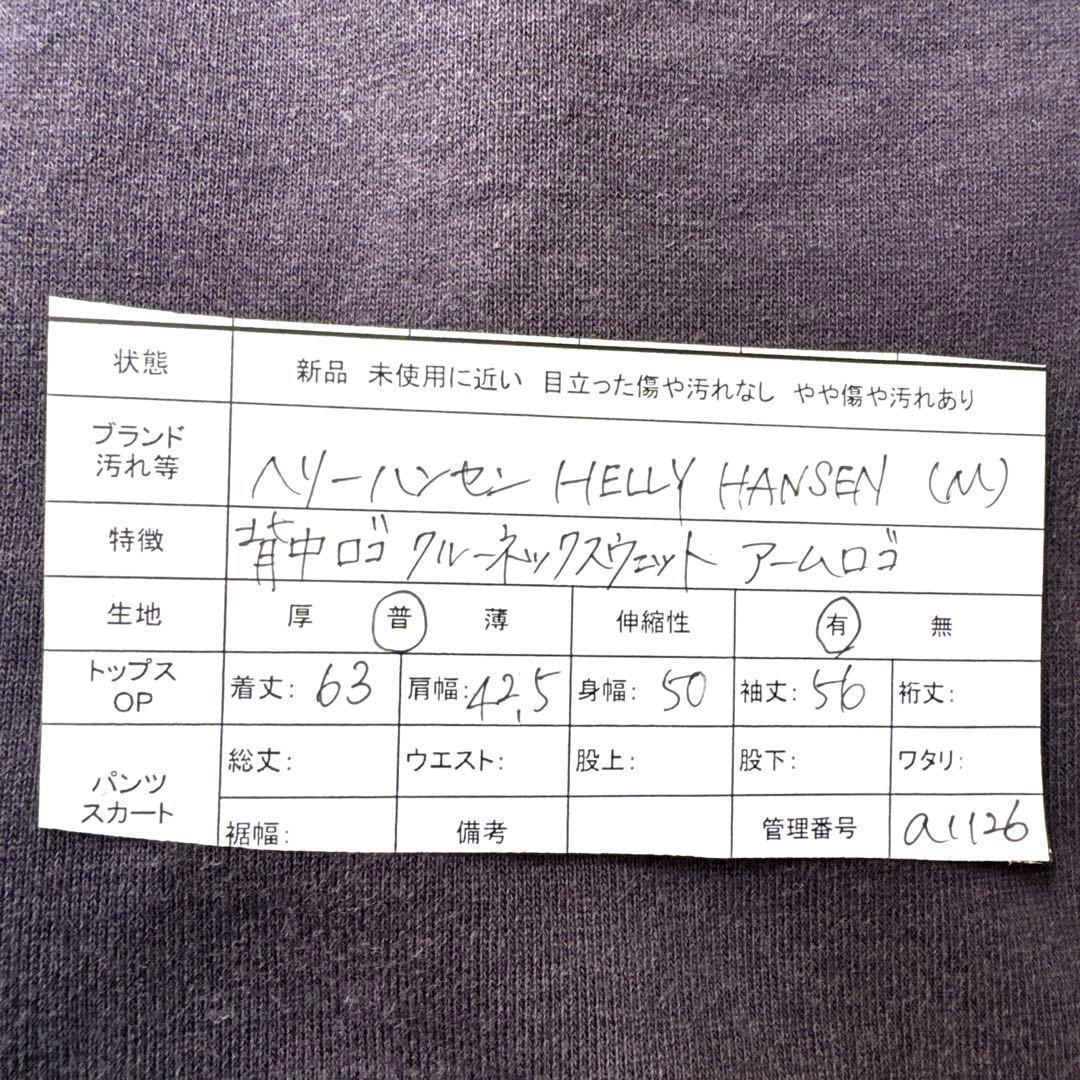 状態 新品 未使用に近い 目立った傷や汚れなし やや傷や汚れあり
ブランド
汚れ等 ヘリーハンセン HELLY HANSEN (M)
特徴 背中ロゴ クルーネックスウェット アームロゴ
生地 厚 普 薄 伸縮性 有 無
トップス
OP 着丈: 63 肩幅: 42.5 身幅: 50 袖丈: 56 裄丈:
総丈: ウエスト: 股上: 股下: ワタリ:
パンツ
スカート
裾幅: 備考 管理番号 a1126